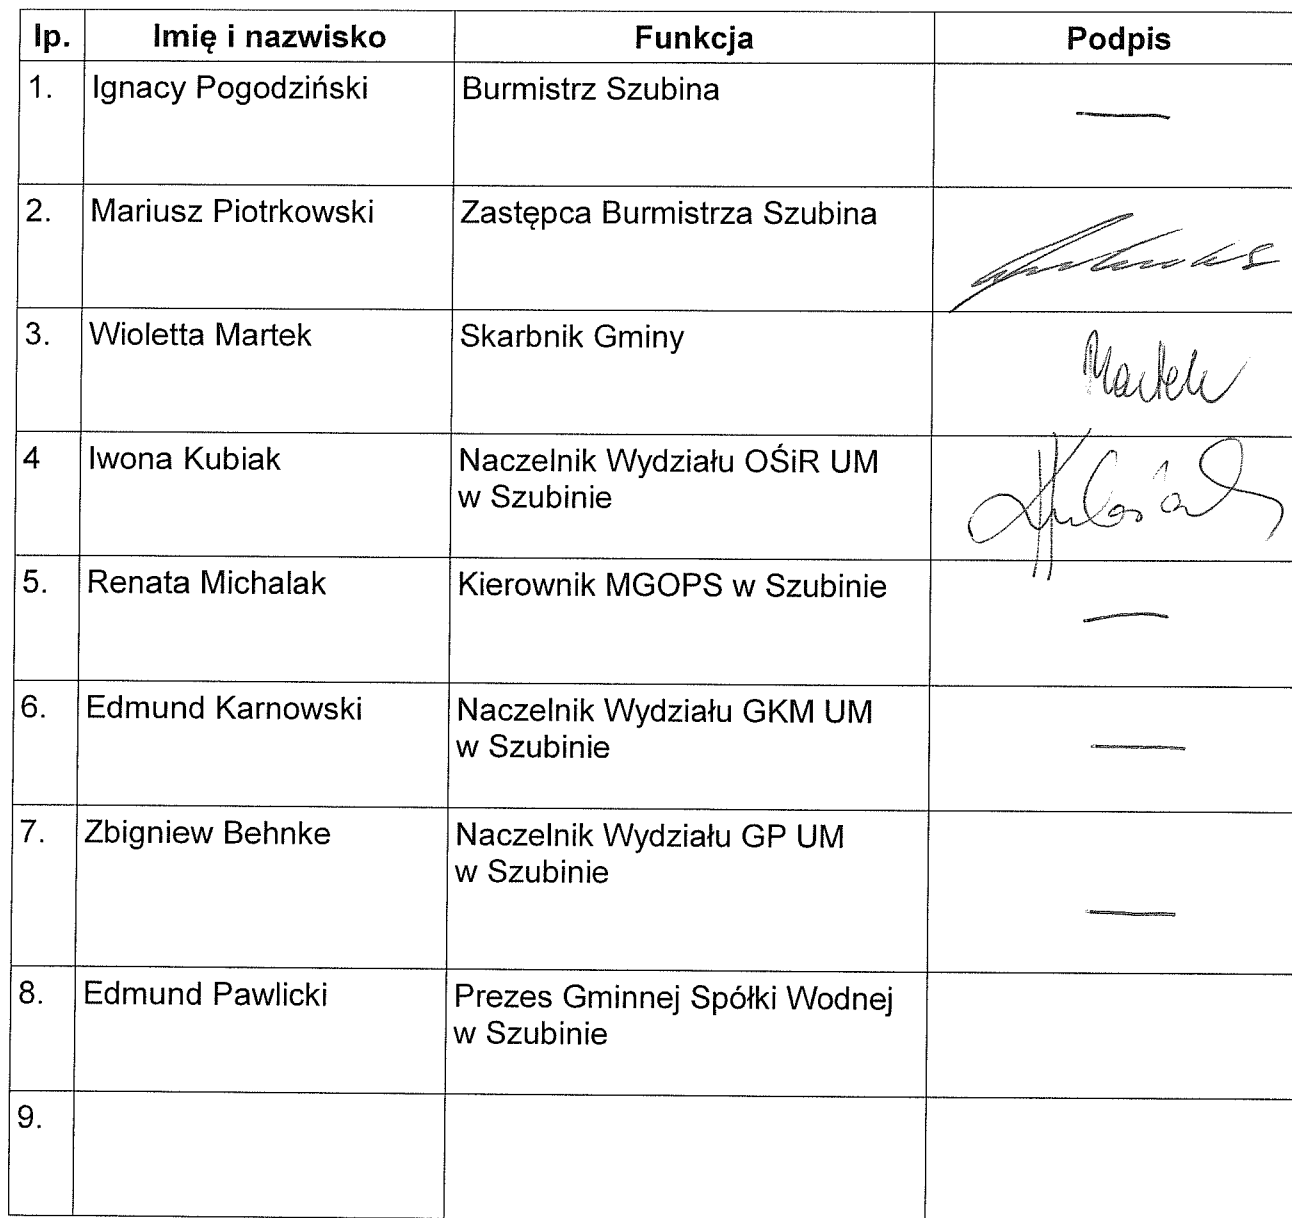 lp. Imię i nazwisko Funkcja Podpis
1. Ignacy Pogodziński Burmistrz Szubina —
2. Mariusz Piotrkowski Zastępca Burmistrza Szubina
3. Wioletta Martek Skarbnik Gminy Martek
4 Iwona Kubiak Naczelnik Wydziału OŚiR UM
w Szubinie
5. Renata Michalak Kierownik MGOPS w Szubinie —
6. Edmund Karnowski Naczelnik Wydziału GKM UM
w Szubinie —
7. Zbigniew Behnke Naczelnik Wydziału GP UM
w Szubinie —
8. Edmund Pawlicki Prezes Gminnej Spółki Wodnej
w Szubinie
9.